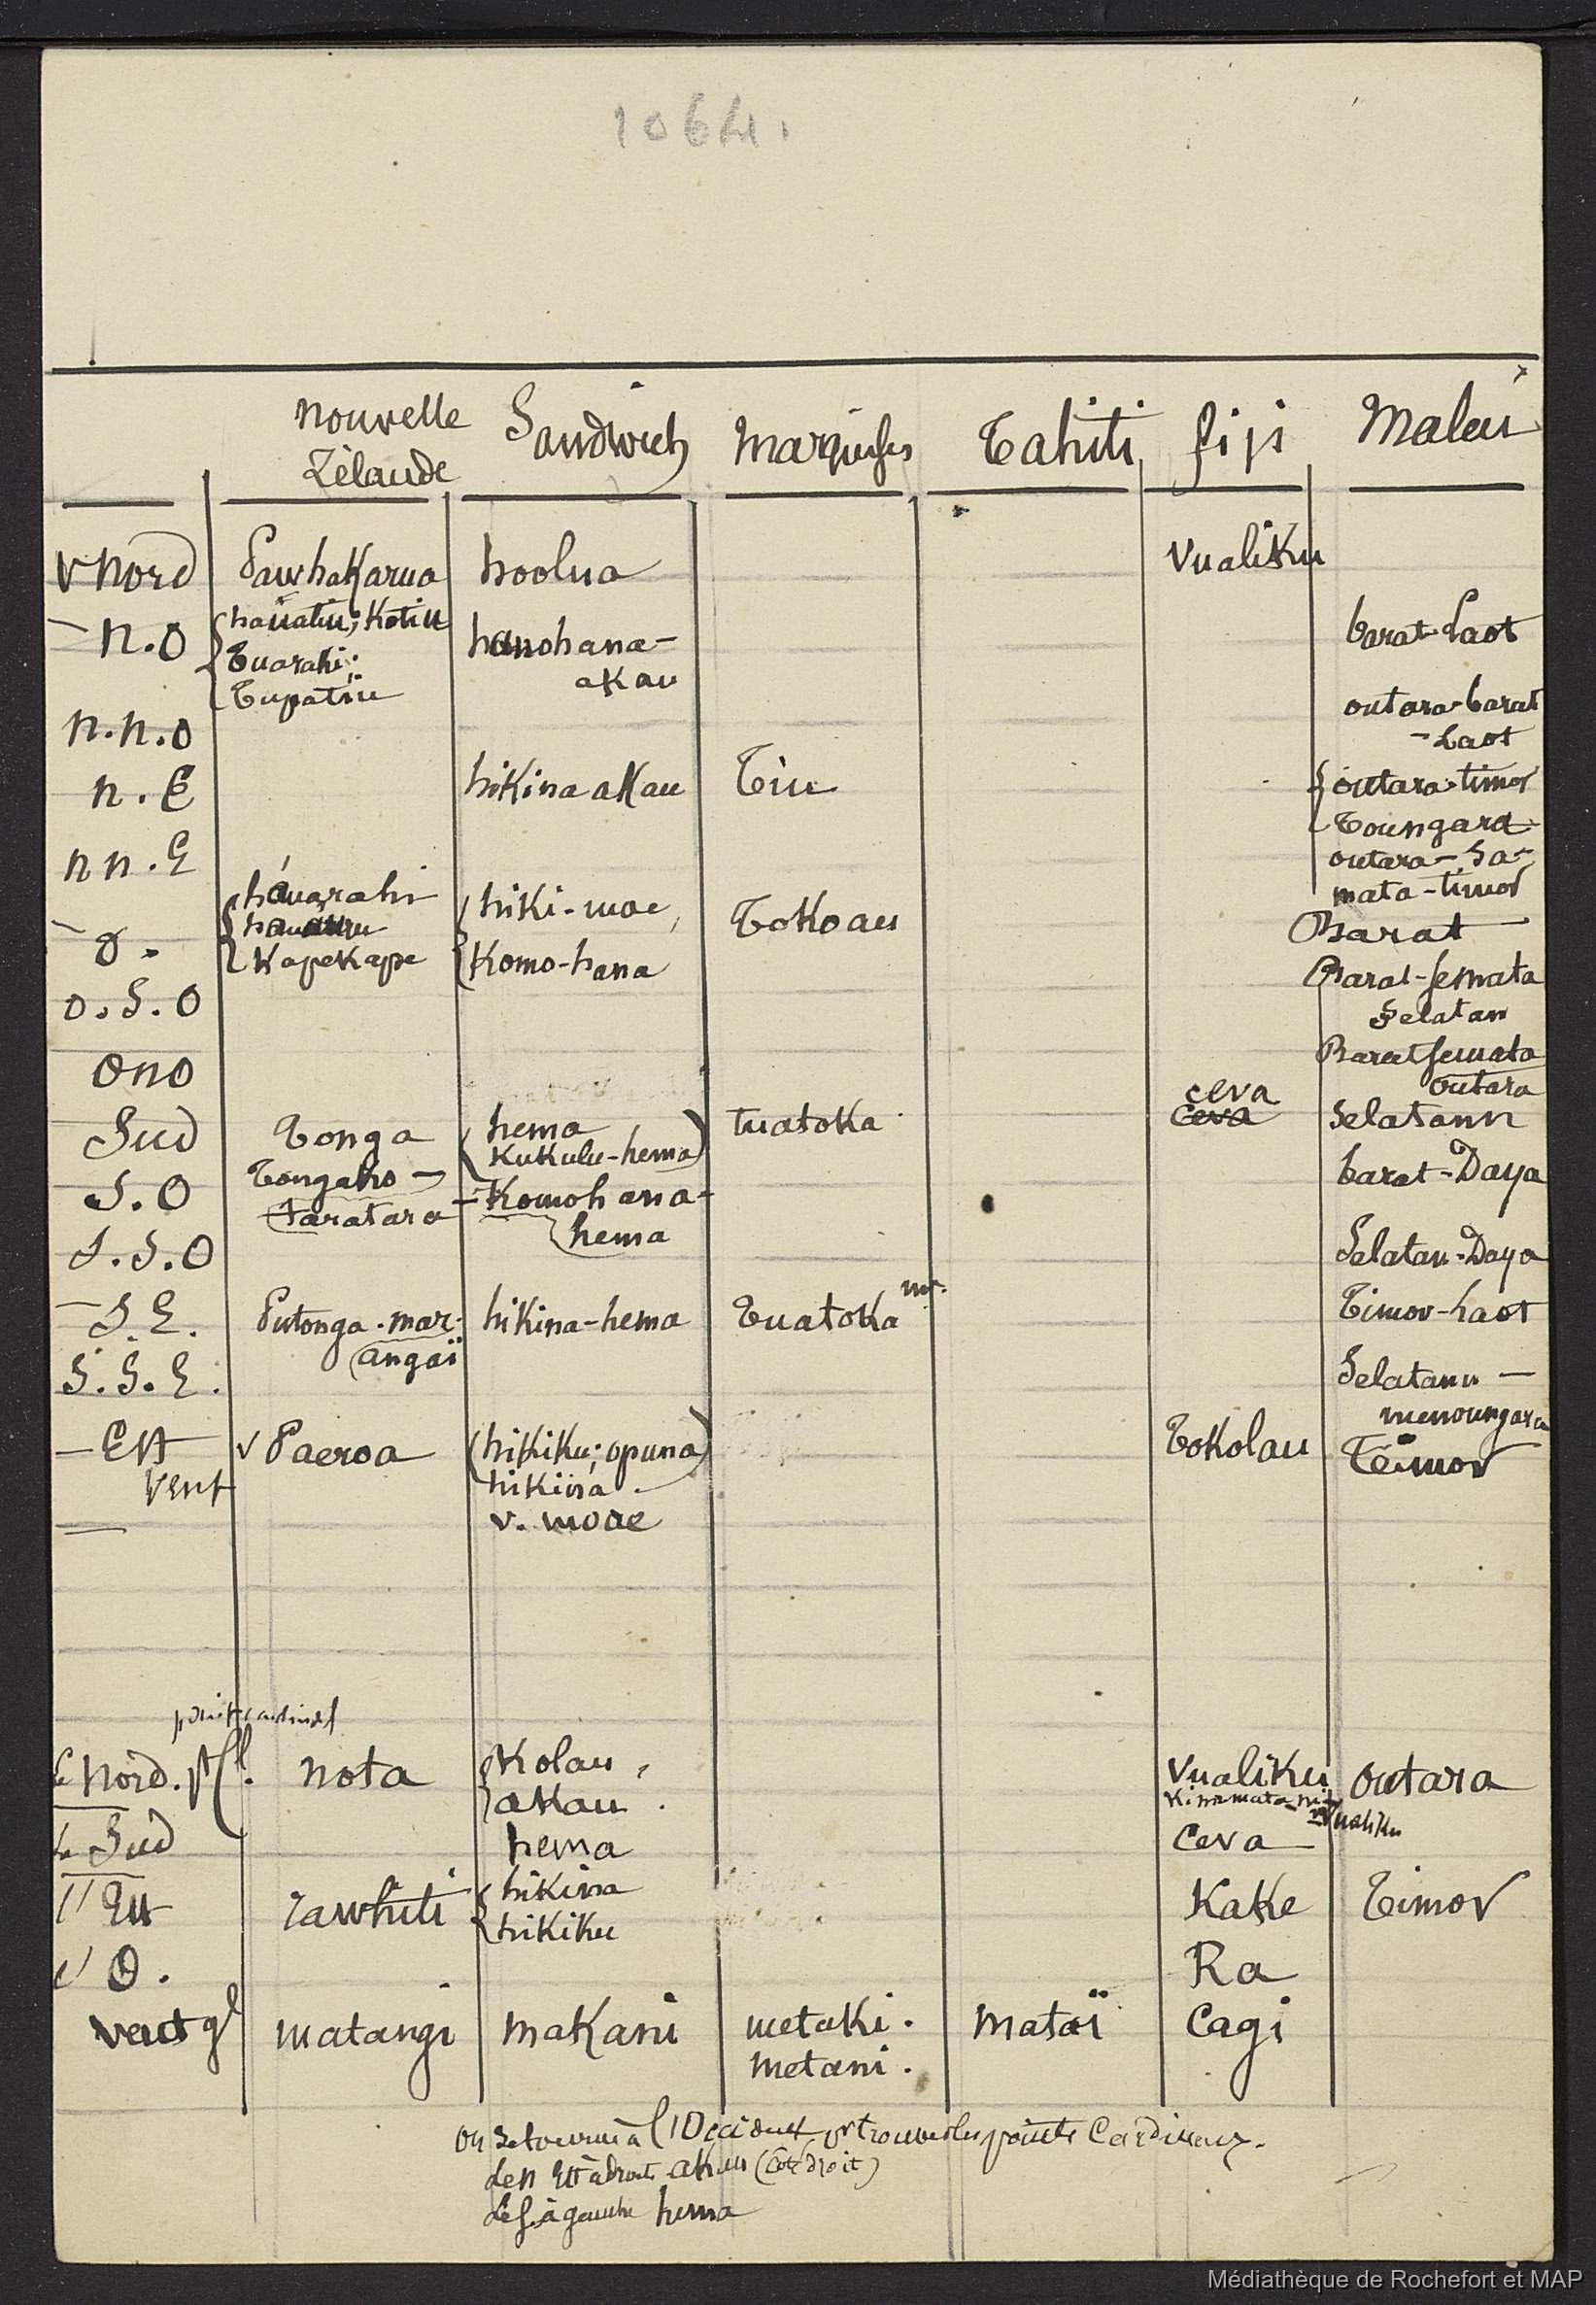 1064.
nouvelle Zélande Sandwich Marquises Tahiti fiji Malais
Nord Pawhakarua hoolua Vualiku
N.O hauatiu; Kotiu hanohana- barat-Laot
Tuarahi; akau
Tupatiu
N.N.O outara-barat
-Laot
N.E hikina akau Tiu outara-timor
Toungara
N N.E outara-Sa-
mata-timor
O. háuarahi hiki-moe, Tokoau Barat
hauauru
Kapekape Komo-hana
O.S.O Barat-semata
Selatan
ONO Barat semata
outara
ceva
Sud Tonga hema tuatoka ceva Selatann
Kukulu-hema
S.O Tongaho- Komohana- barat-Daya
taratara hema
S.S.O Selatan-Daya
S.E. Putonga-mar- hikina-hema Tuatoka Timor-Laot
angaï
S.S.E. Selatann-
menoungara
Est Paeroa hikiku; opuna Tokolau Timor
vent hikina.
v. moae
point cardinal
Le Nord. nota Kolau, Vualiku outara
akau. Kinamata-ni-
vualiku
Le Sud hema Ceva
l'Est rawhiti hikina Kake Timor
hikiku
l'O. Ra
vent gl matangi makani metaki. mataï Cagi
metani.
on se tourne à l'Occident pr trouver les points Cardinaux.
Le N est à droite akau (côté droit)
Le S. à gauche hema
Médiathèque de Rochefort et MAP